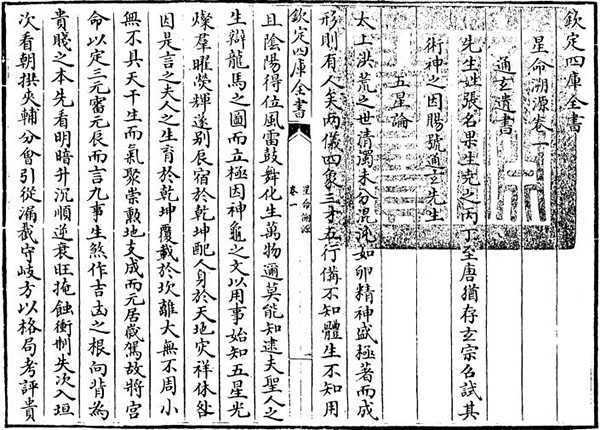 欽定四庫全書
星命溯源卷一
通玄遺書
先生姓張名果生堯之丙丁至唐猶存玄宗召試其
術神之因賜號通玄先生
五星論
太上洪荒之世清濁未分混沌如卵精神盛極著而成
形則有人矣两儀四象三才五行備不知體生不知用
欽定四庫全書
星命溯源
卷一
且陰陽得位風雷鼓舞化生萬物邇莫能知逮夫聖人之
生辯龍馬之圖而立極因神龜之文以用事始知五星光
燦羣曜熒輝遂别辰宿於乾坤配人身於天地灾祥休咎
因是言之夫人之生育於乾坤覆載於坎離大無不周小
無不具天干生而氣聚崇勲地支成而元居歲駕故將宫
命以定三元審元辰而言九事生煞作吉凶之根向背為
貴賤之本先看明暗升沉順逆衰旺掩蝕衝制失次入垣
次看朝拱夾輔分會引從漏截守岐方以格局考評貴